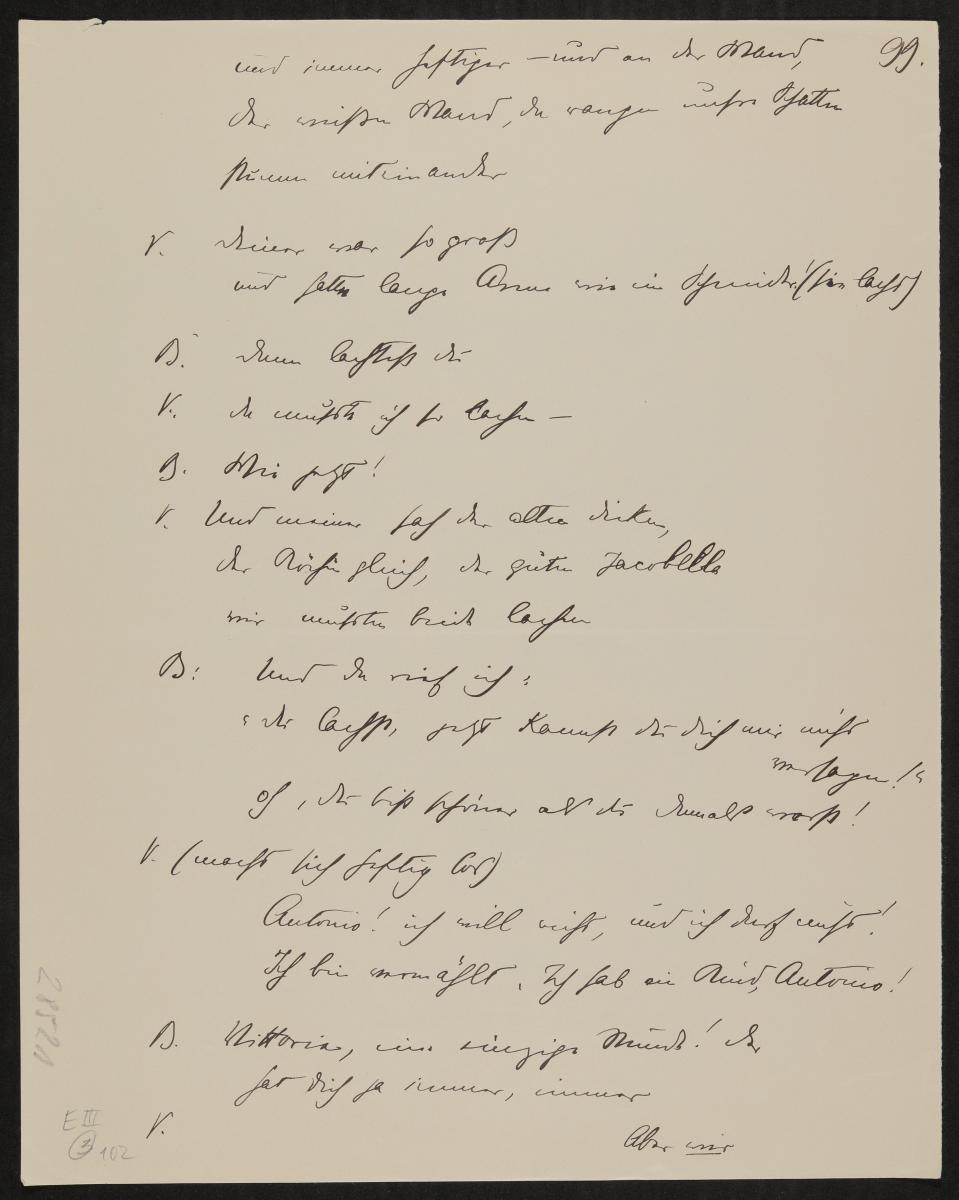 99.
und immer heftiger – und an der Wand,
der weißen Wand, da rangen unsre Schatten
stumm miteinander
V. deiner war so groß
und hatte lange Arme wie ein Schneider! (sie lacht)
B. dann lachtest du
V. da mußte ich so lachen –
B. Wie jetzt!
V. Und meiner sah der alten dicken,
der Köchin gleich, der guten Jacobella
wir mußten beide lachen
B: Und da rief ich:
"du lachst, jetzt kannst du dich mir nicht
versagen!"
oh, du bist schöner als du damals warst!
V. (macht sich heftig los)
Antonio! ich will nicht, und ich darf nicht!
Ich bin vermählt. Ich hab ein Kind, Antonio!
B. Vittoria, eine einzige Stunde! der
hat dich ja immer, immer
V. Aber wir
2852A
E III
3 102